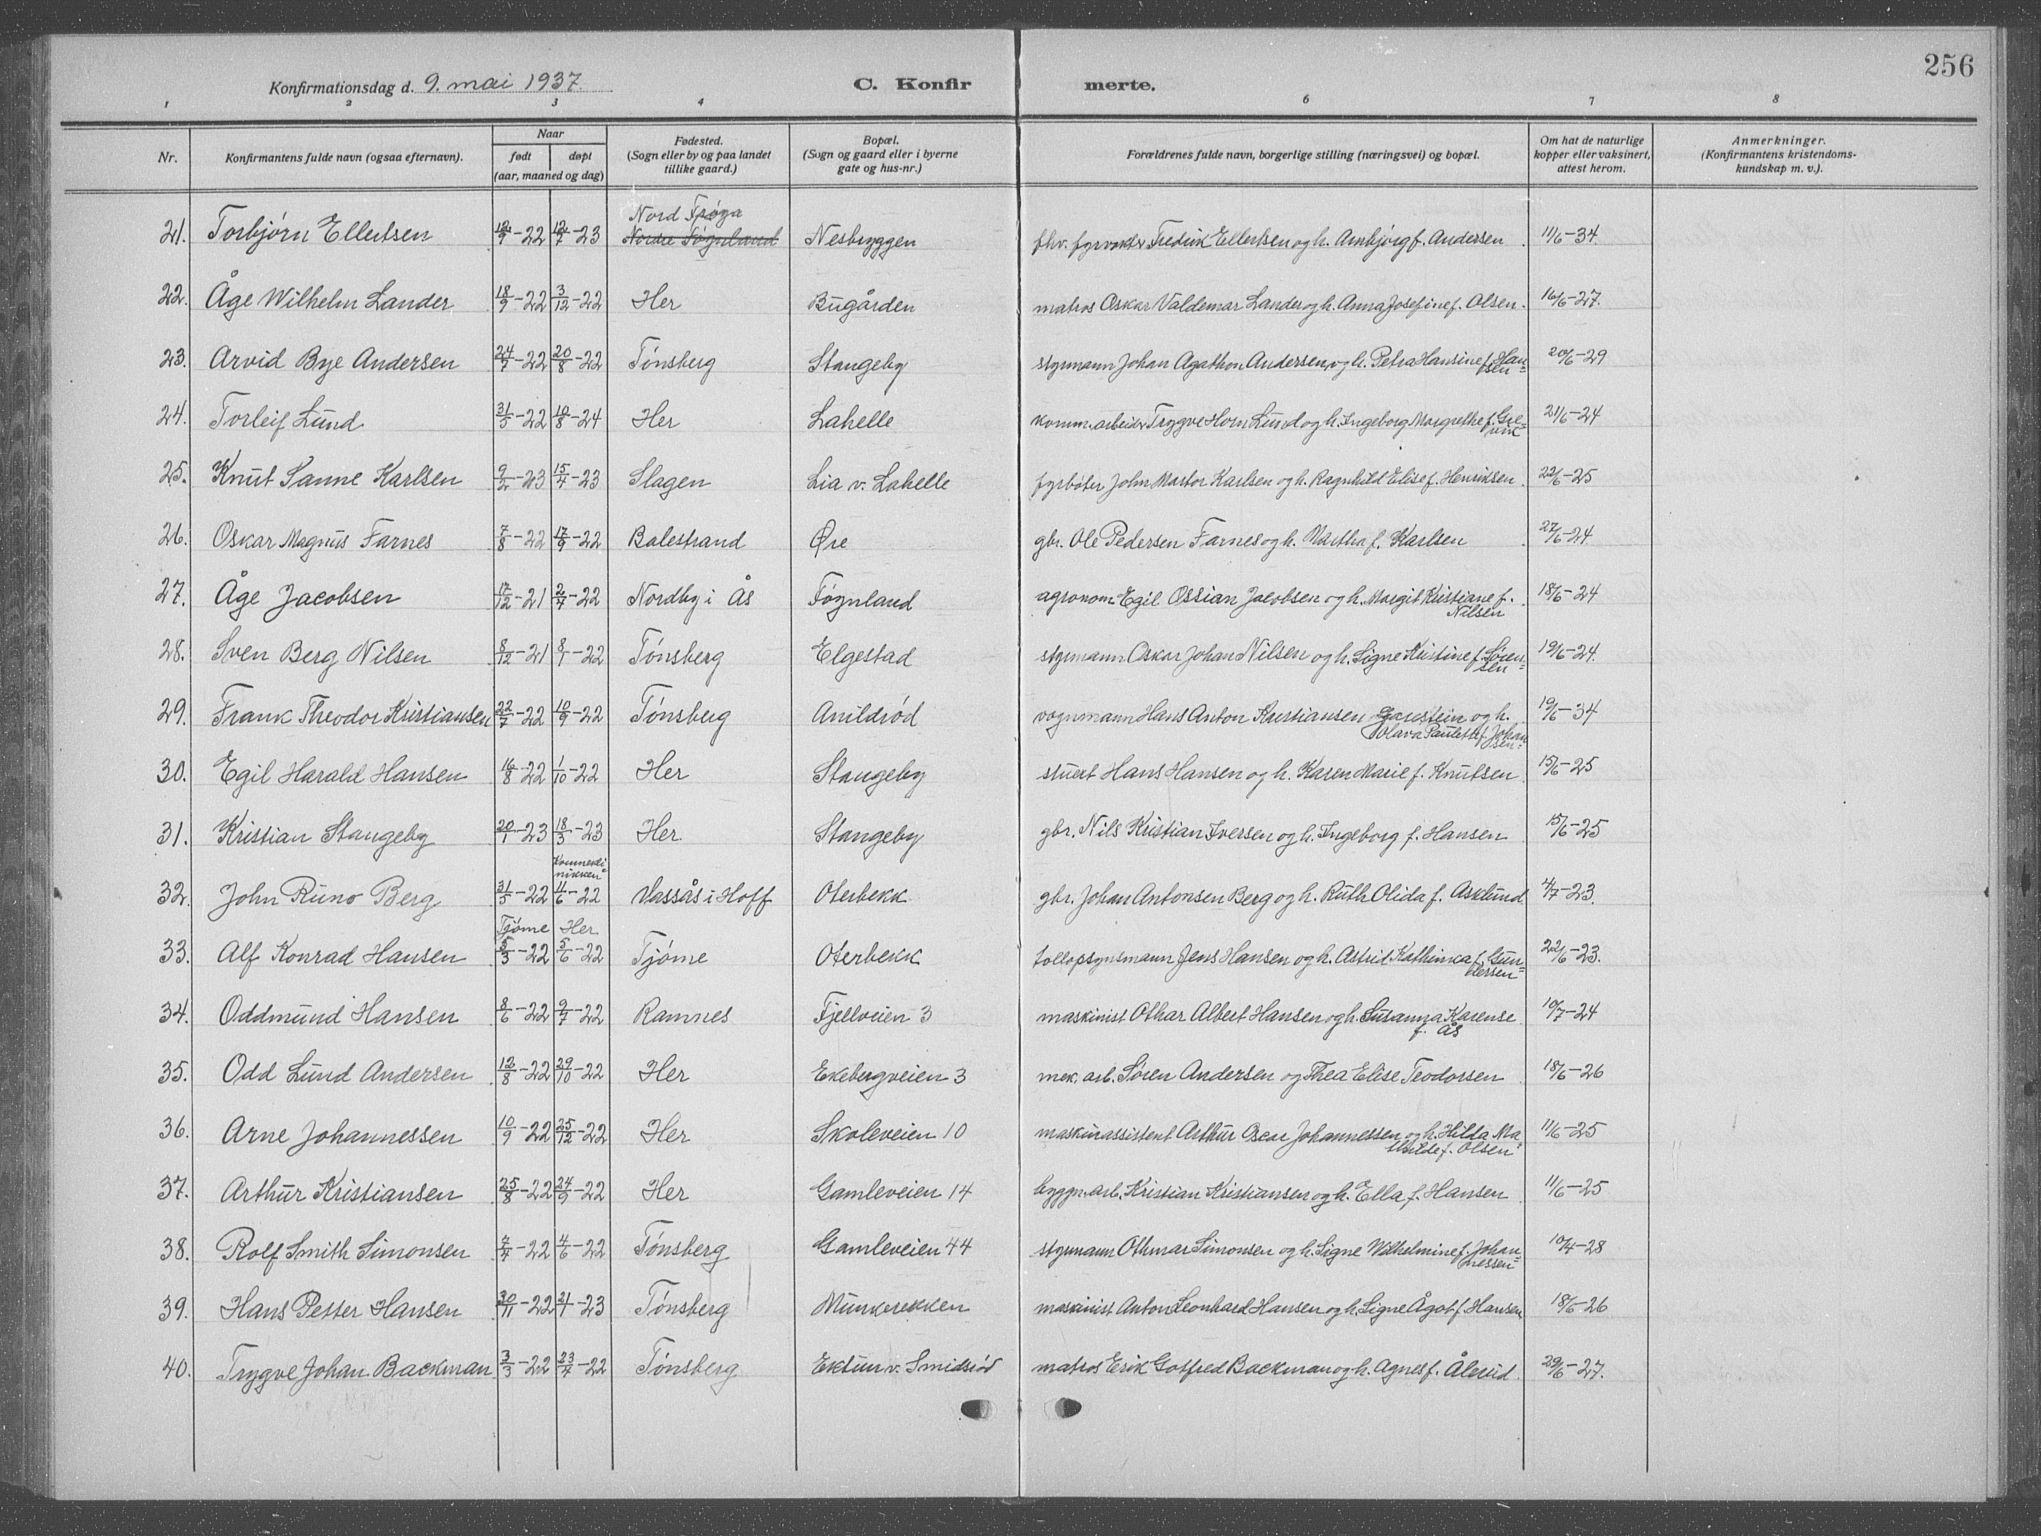 256
Konfirmationsdag d. 9. mai 1937.
C. Konfirmerte.
1 2 3 4 6 7 8
Nr. Konfirmantens fulde navn (ogsaa efternavn). Naar født døpt (aar, maaned og dag) Fødested. (Sogn eller by og paa landet tillike gaard.) Bopæl. (Sogn og gaard eller i byerne gate og hus-nr.) Forældrenes fulde navn, borgerlige stilling (næringsvei) og bopæl. Om hat de naturlige kopper eller vaksinert, attest herom. Anmerkninger. (Konfirmantens kristendoms-kundskap m. v.).
21. Torbjørn Ellertsen 12/9-22 12/7-23 Nord Frøya Nordre Føynland Nesbryggen fhv. fyrvokter Fredrik Ellertsen og h. Arnbjørg f. Andersen 11/6-34
22. Åge Wilhelm Lander 18/9-22 3/12-22 Her Bugården matros Oskar Valdemar Lander og h. Anna Josefine f. Olsen. 16/6-27.
23. Arvid Bye Andersen 24/7-22 20/8-22 Tønsberg Stangeby styrmann Johan Agathon Andersen og h. Petra Hansine f. Hansen 20/6-29
24. Torleif Lund 31/5-22 10/8-24 Her Lahelle komm. arbeider Trygve Horn Lund og h. Ingeborg Margrethe f. 21/6-24
25. Knut Sanne Karlsen 9/2-23 15/4-23 Slagen Lia v. Lahelle fyrbøter John Martor Karlsen og h. Ragnhild Elise f. Henriksen 22/6-25
26. Oskar Magnus Farnes 7/8-22 17/9-22 Balestrand Øre gbr. Ole Pedersen Farnes og h. Martha f. Karlsen 27/6-24
27. Åge Jacobsen 17/12-21 2/4-22 Nordby i Ås Føynland agronom Egil Ossian Jacobsen og h. Margit Kristiane f. Nilsen 18/6-24
28. Sven Berg Nilsen 8/12-21 8/1-22 Tønsberg Elgestad styrmann Oskar Johan Nilsen og h. Signe Kristine f. Sørensen 19/6-24.
29. Frank Theodor Kristiansen 22/7-22 10/9-22 Tønsberg Arildrød vognmann Hans Anton Kristiansen og h. Olava Paulette f. Johansen 19/6-34
30. Egil Harald Hansen 16/8-22 1/10-22 Her Stangeby stuert Hans Hansen og h. Karen Marie f. Knutsen 15/6-25
31. Kristian Stangeby 20/1-23 18/3-23 Her Stangeby gbr. Nils Kristian Iversen og h. Ingeborg f. Hansen 15/6-25
32. John Runo Berg 31/5-22 4/6-22 Vassås i Hoff Oterbekk gbr. Johan Antonsen Berg og h. Ruth Olida f. Asklund 4/7-23.
33. Alf Konrad Hansen Tjøme 5/3-22 Her 5/6-22 Tjøme Oterbekk tollopsynsmann Jens Hansen og h. Astrid Kathinca f. Gundersen 22/6-23.
34. Oddmund Hansen 8/6-22 9/7-22 Ramnes Fjellveien 3 maskinist Othar Albert Hansen og h. Susanna Karense f. Ås 10/7-24
35. Odd Lund Andersen 13/8-22 29/10-22 Her Ekebergveien 3 mek. arb. Søren Andersen og Thea Elise Teodorsen 18/6-26
36. Arne Johannessen 10/9-22 25/12-22 Her Skoleveien 10 maskinassistent Arthur Oscar Johannessen og h. Hilda Mathilde f. Olsen 11/6-25
37. Arthur Kristiansen 25/8-22 24/9-22 Her Gamleveien 14 byggn. arb. Kristian Kristiansen og h. Ella f. Hansen 11/6-25
38. Rolf Smith Simonsen 7/4-22 4/6-22 Tønsberg Gamleveien 44 styrmann Othmar Simonsen og h. Signe Wilhelmine f. Johannessen 10/4-28
39. Hans Petter Hansen 30/11-22 21/1-23 Tønsberg Munkerekken maskinist Anton Leonhard Hansen og h. Signe Ågot f. Hansen 18/6-26
40. Trygve Johan Backman 3/3-22 23/4-22 Tønsberg Ektun v. Smidsrød matros Erik Gotfred Backman og h. Agnes f. Ålerud 29/6-27.